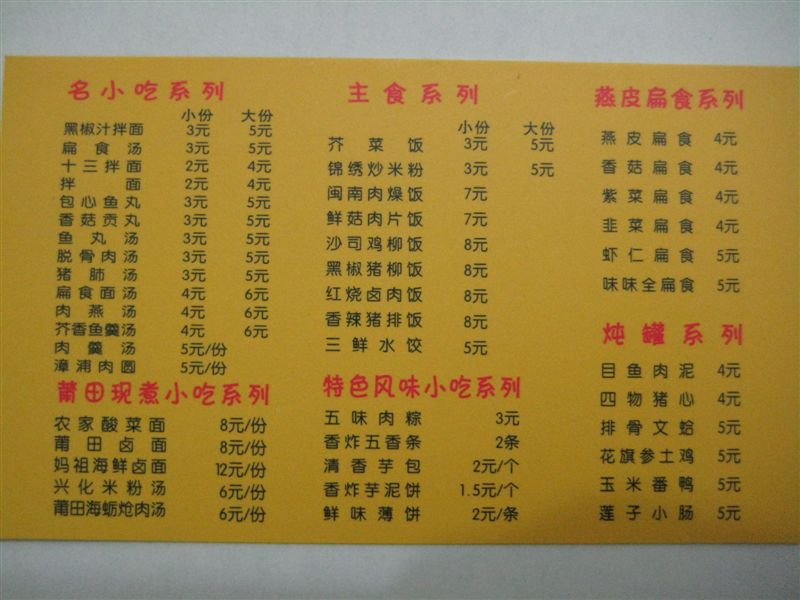 名小吃系列
小份 大份
黑椒汁拌面 3元 5元
扁食汤 3元 5元
十三拌面 2元 4元
拌面 2元 4元
包心鱼丸 3元 5元
香菇贡丸 3元 5元
鱼丸汤 3元 5元
脱骨肉汤 3元 5元
猪肺汤 3元 5元
扁食面汤 4元 6元
肉燕汤 4元 6元
芥香鱼羹汤 4元 6元
肉羹汤 5元/份
漳浦肉圆 5元/份
莆田现煮小吃系列
农家酸菜面 8元/份
莆田卤面 8元/份
妈祖海鲜卤面 12元/份
兴化米粉汤 6元/份
莆田海蛎炝肉汤 6元/份
主食系列
小份 大份
芥菜饭 3元 5元
锦绣炒米粉 3元 5元
闽南肉燥饭 7元
鲜菇肉片饭 7元
沙司鸡柳饭 8元
黑椒猪柳饭 8元
红烧卤肉饭 8元
香辣猪排饭 8元
三鲜水饺 5元
特色风味小吃系列
五味肉粽 3元
香炸五香条 2条
清香芋包 2元/个
香炸芋泥饼 1.5元/个
鲜味薄饼 2元/条
燕皮扁食系列
燕皮扁食 4元
香菇扁食 4元
紫菜扁食 4元
韭菜扁食 4元
虾仁扁食 5元
味味全扁食 5元
炖罐系列
目鱼肉泥 4元
四物猪心 4元
排骨文蛤 5元
花旗参土鸡 5元
玉米番鸭 5元
莲子小肠 5元